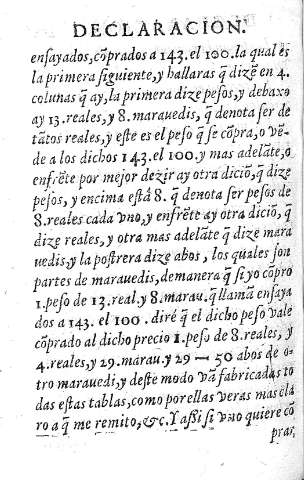 DECLARACION.
enſayados,cõprados a 143.el 100.la qual es
la primera ſiguiente,y hallaras q̃ dizẽ en 4.
colunas q̃ ay, la primera dize peſos, y debaxo
ay 13.reales, y 8. marauedis, q̃ denota ſer de
tãtos reales, y eſte es el peſo q̃ ſe cõpra, o vẽ-
de a los dichos 143.el 100.y mas adelãte,o
enfrẽte por mejor dezir ay otra diciõ,q̃ dize
peſos, y encima eſtâ 8. q̃ denota ſer peſos de
8.reales cada vno, y enfrẽte ay otra diciõ, q̃
dize reales, y otra mas adelãte q̃ dize mara
uedis,y la poſtrera dize abos, los quales ſon
partes de marauedis,demanera q̃ ſi yo cõpro
1.peſo de 13.real,y 8.marau.q̃ llamã enſaya
dos a 143. el 100. dirè q̃ el dicho peſo vale
cõprado al dicho precio 1.peſo de 8.reales, y
4.reales,y 29.marau.y 29 — 50 abos de o-
tro marauedi,y deſte modo vã fabricadas to
das eſtas tablas, como por ellas veras mas cla
ro a q̃ me remito, &c.Y aſſi ſi vno quiere cõ
prar,